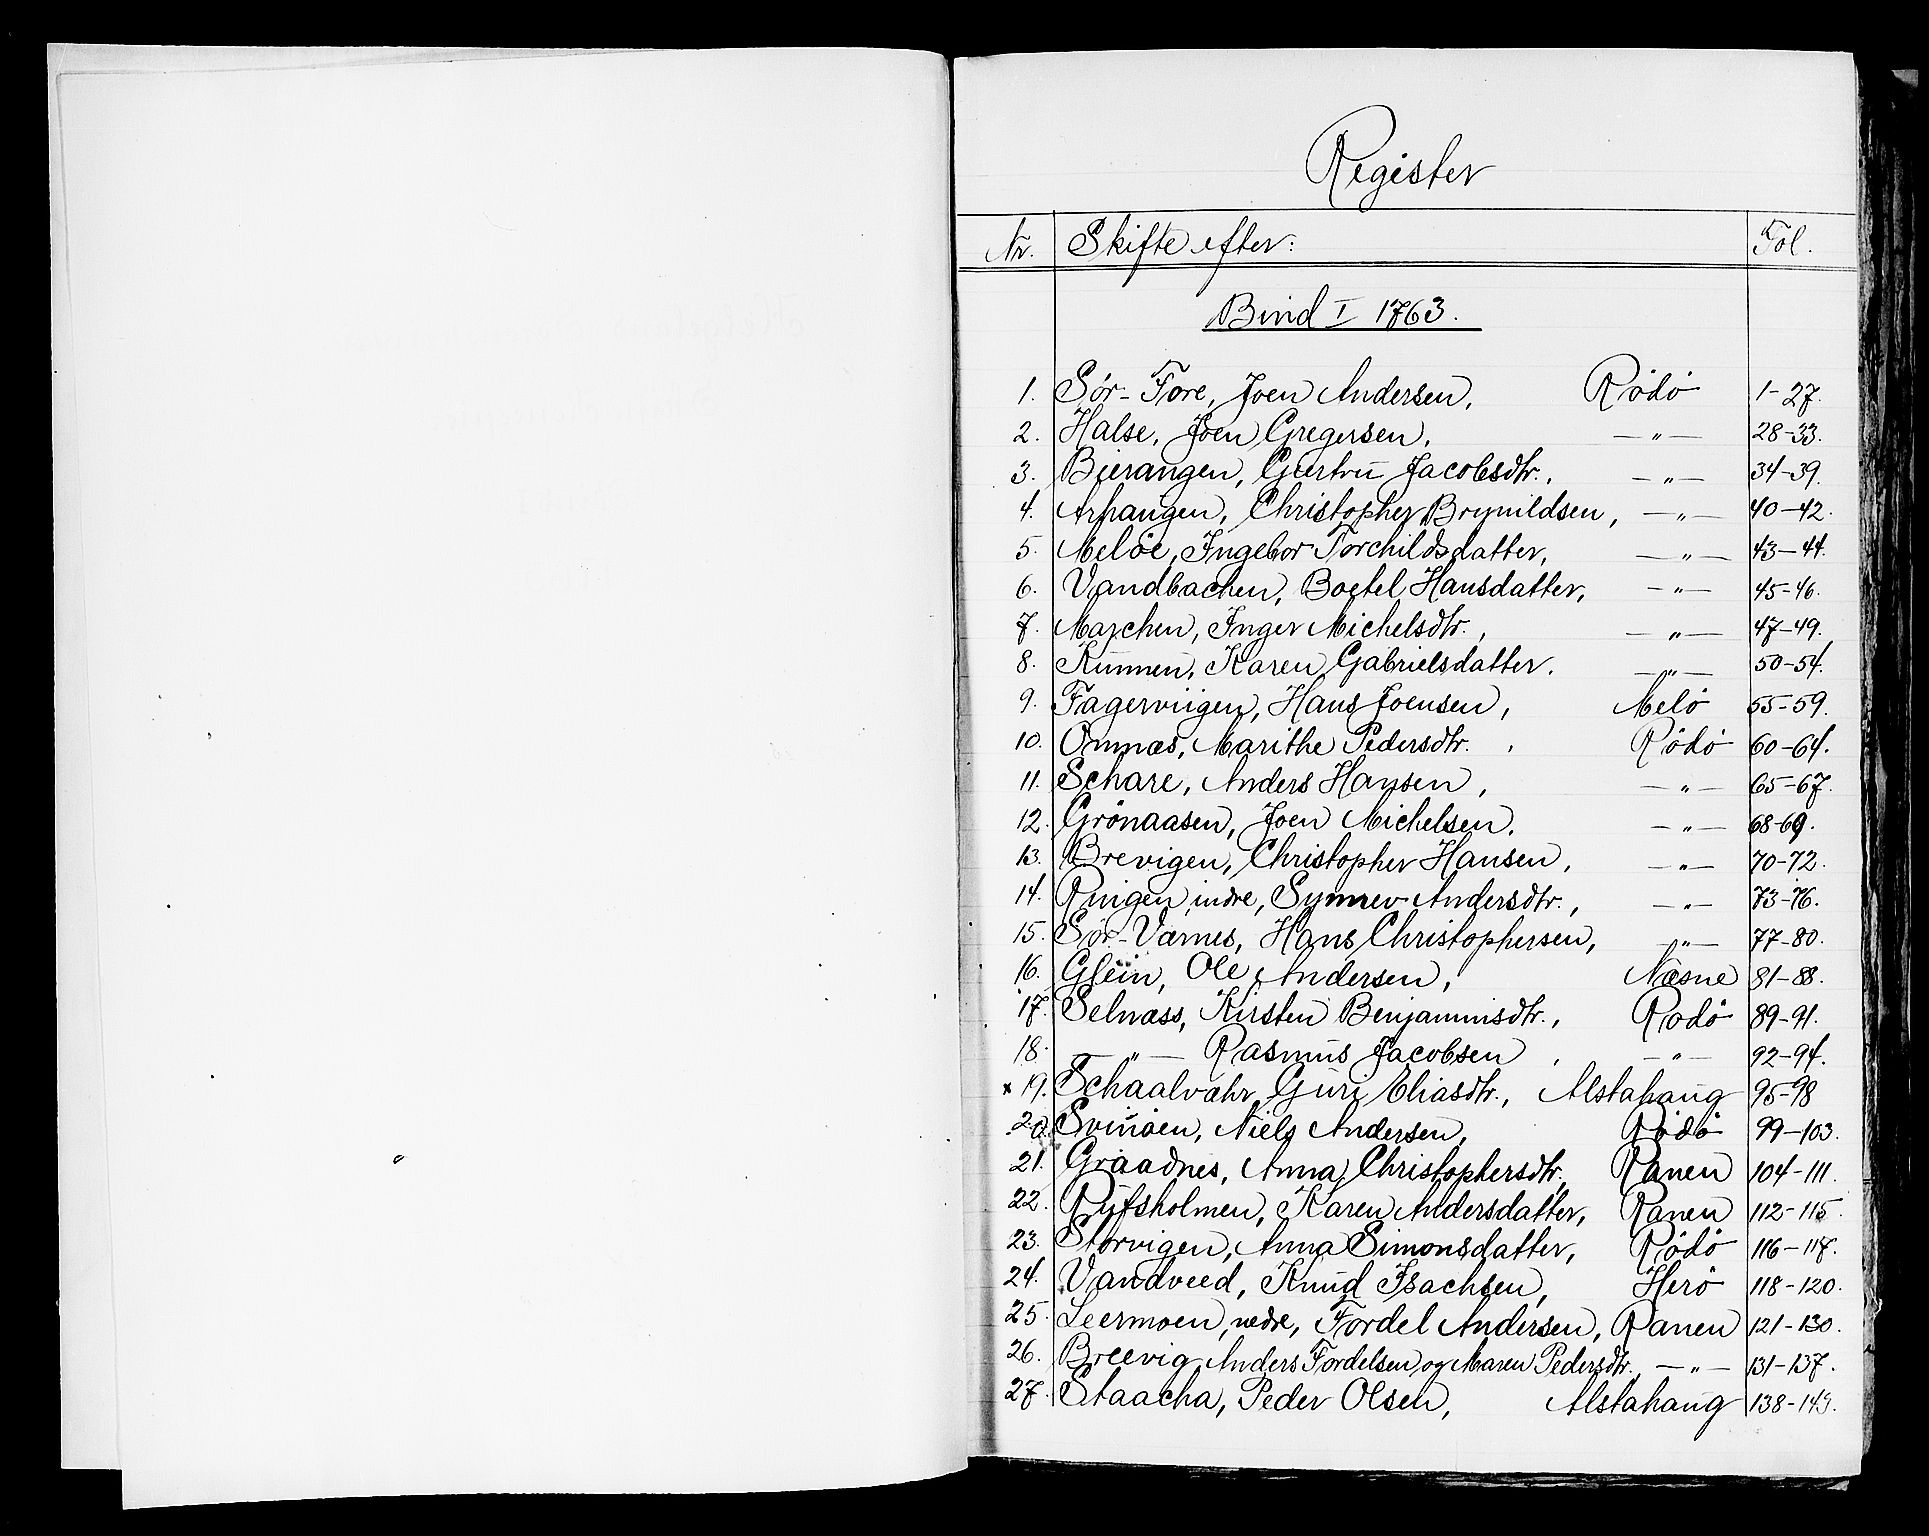 Register
Nr. Skifte efter: Fol.
Bind I 1763.
1. Sør-Fore, Joen Andersen, Rödö 1-27.
2. Halse, Joen Gregersen, —„— 28-33.
3. Bierangen, Giertru Jacobsdtr., —„— 34-39.
4. Arhaugen, Christopher Brynildsen, —„— 40-42.
5. Meløe, Ingebor Torchildsdatter, —„— 43-44.
6. Vandbachen, Boetel Hansdatter, —„— 45-46.
7. Marchen, Inger Michelsdtr., —„— 47-49.
8. Kunnen, Karen Gabrielsdatter. —„— 50-54.
9. Fagerviigen, Hans Joensen, Melö 55-59.
10. Omnæs, Marithe Pedersdtr. , Rödö 60-64.
11. Schare, Anders Hansen, —„— 65-67.
12. Grönaasen, Joen Michelsen, —„— 68-69.
13. Brevigen, Christopher Hansen, —„— 70-72.
14. Ringen indre, Synnev Andersdtr., —„— 73-76.
15. Sör-Værnes, Hans Christophersen, —„— 77-80.
16. Glein, Ole Andersen, Næsne 81-88.
17. Selnæss, Kirsten Benjaminsdtr., Rodö 89-91.
18. —„— Rasmus Jacobsen , —„— 92-94.
x 19. Schaalvahr, Guri Eliasdtr., Alstahaug 95-98
20. Svinöen, Niels Andersen, Rödö 99-103.
21. Graadnes, Anna Christophersdtr, Ranen 104-111.
22. Rufsholmen, Karen Andersdatter, Ranen 112-115.
23. Storvigen, Anna Simonsdatter, Rödö 116-117.
24. Vandveed, Knud Isachsen, Herö 118-120.
25. Leermoen, nedre, Fordel Andersen, Ranen 121-130.
26. Breevig, Anders Fordelsen og Maren Pedersdtr. —„— 131-137.
27. Staacha, Peder Olsen, Alstahaug 138-143.